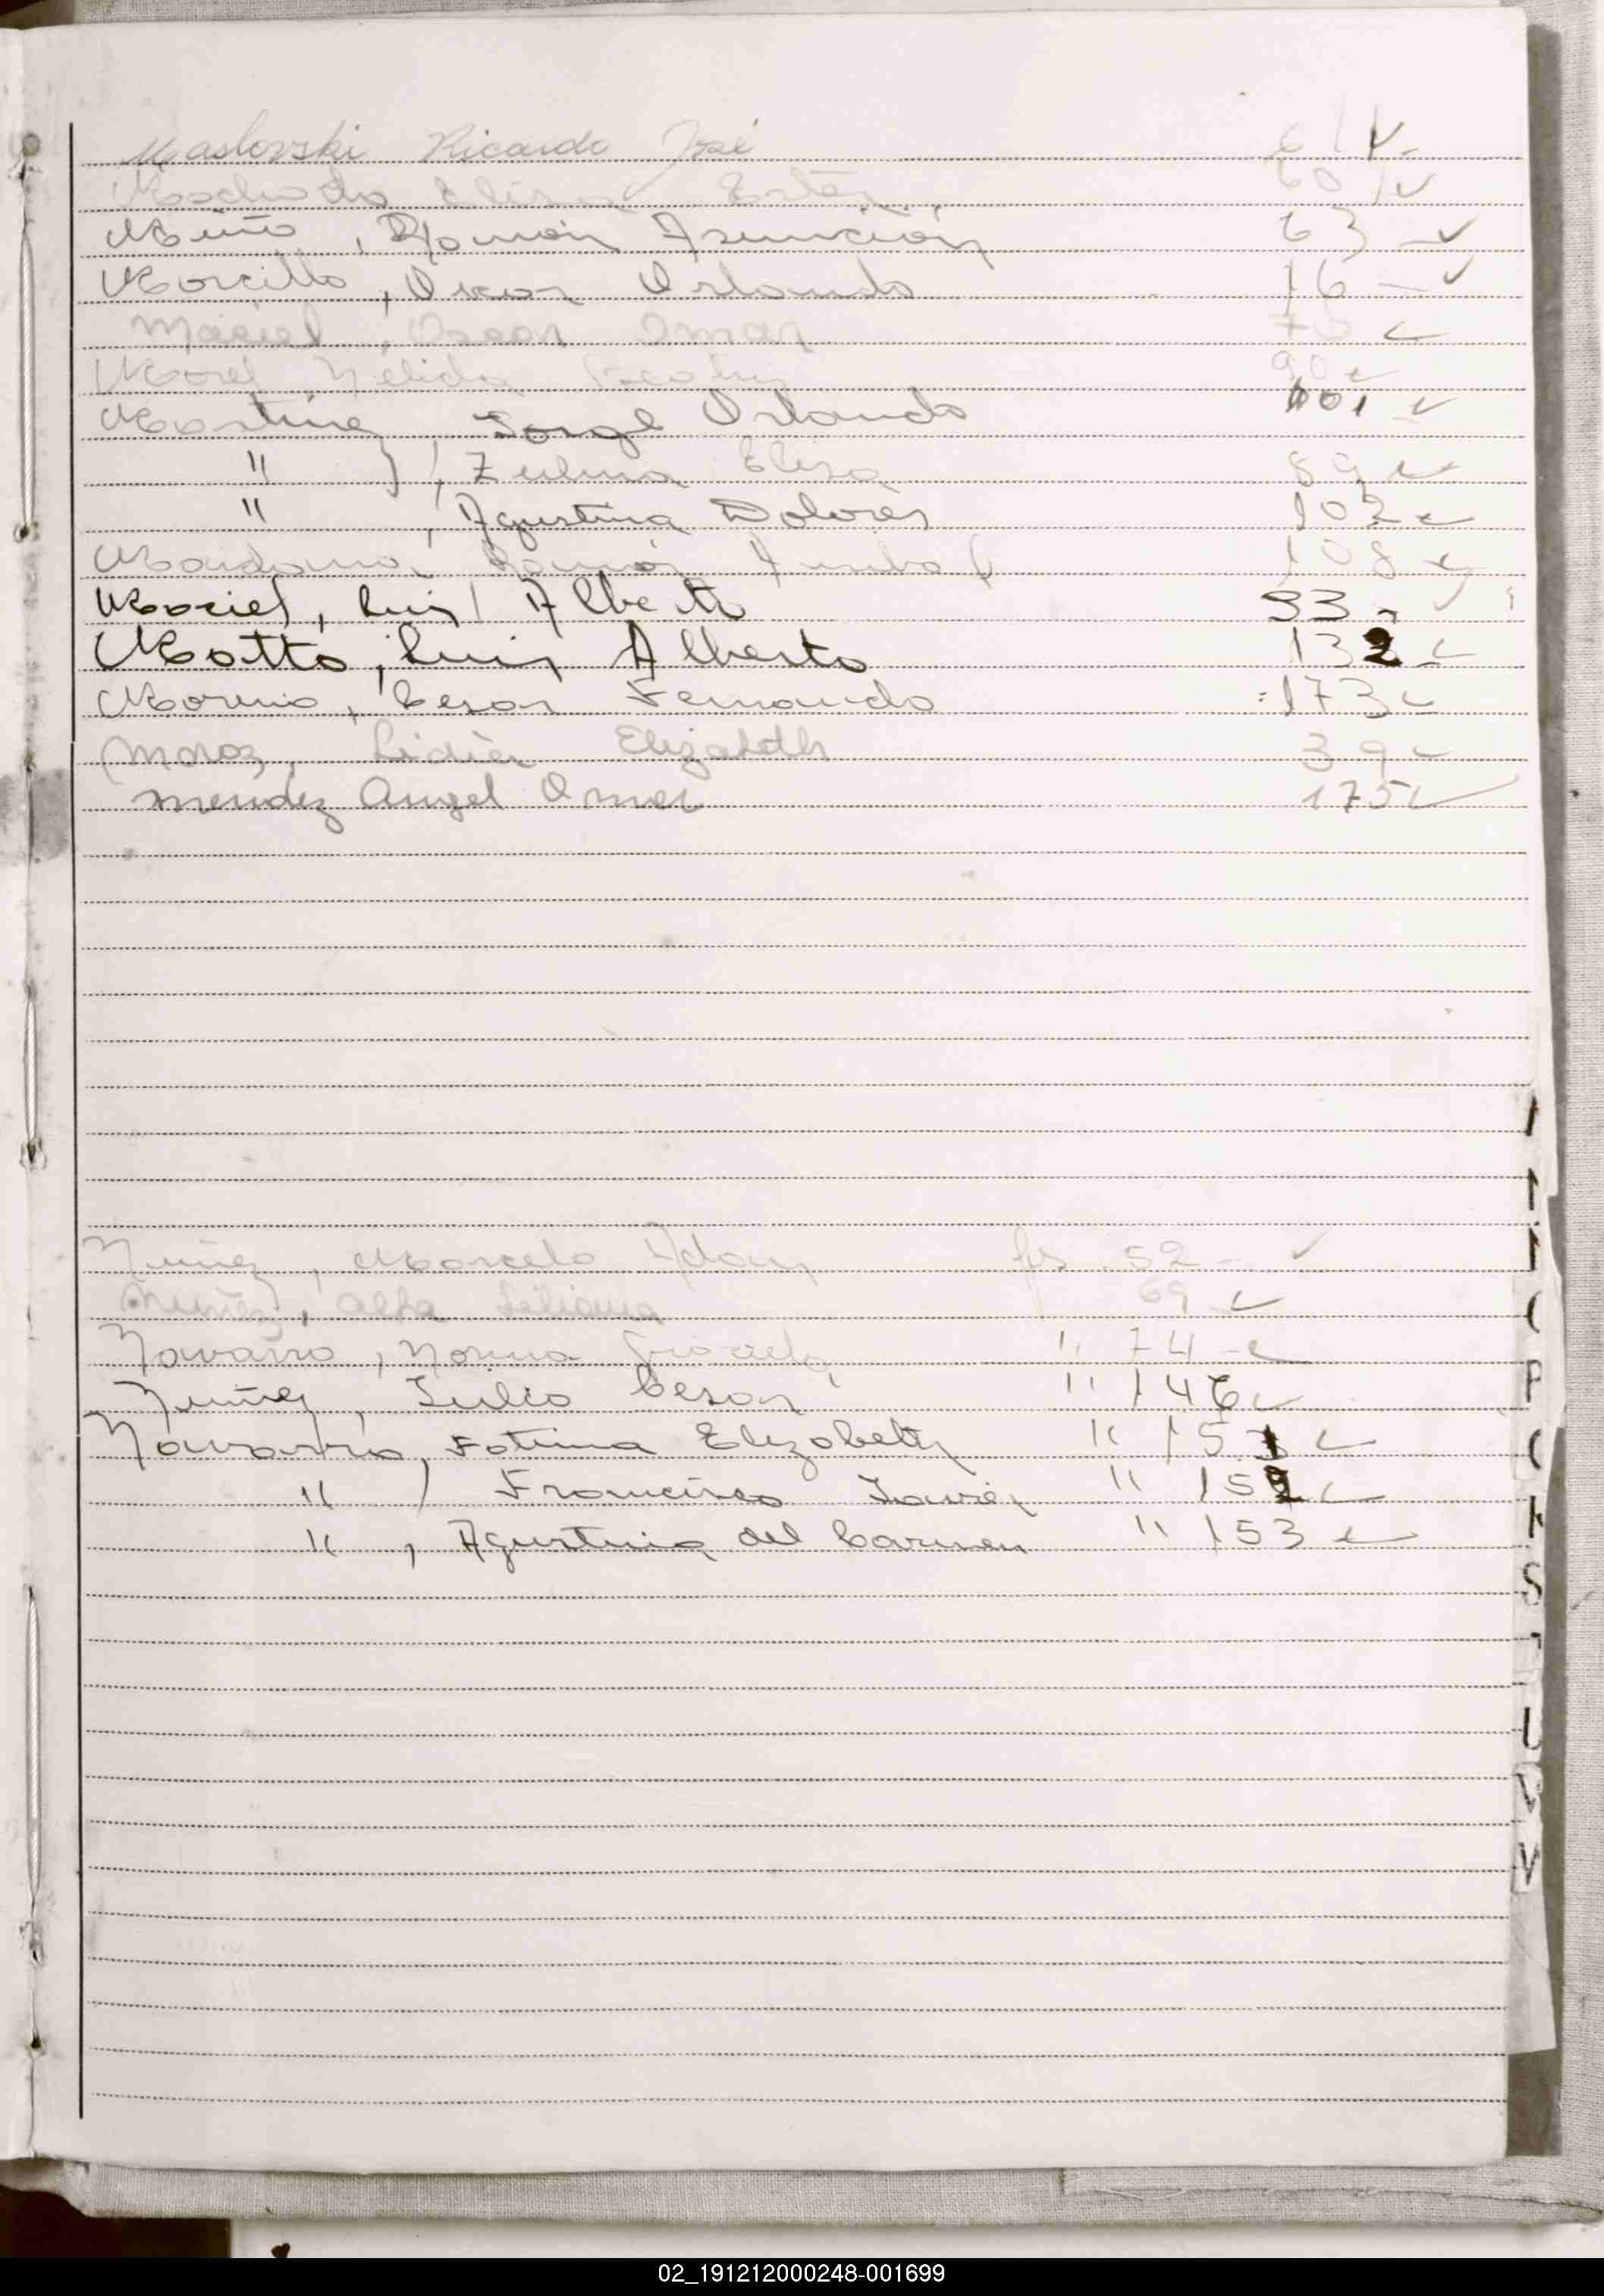 Maslovski Ricardo José 61 ✓
Machado Elisa Ester 60 ✓
Miño, Ramón Asunción 63 - ✓
Morcillo, Oscar Orlando 16 - ✓
Maciel, Oscar Omar 75 ✓
Morel Nélida Beatriz 90 ✓
Martinez, Jorge Orlando 101 ✓
" , Zulma Elisa 89 ✓
" , Agustina Dolores 102 ✓
Maidana, Ramón 108 ✓
Maciel, Luis Alberto 33 - ✓
Motto, Luis Alberto 132 ✓
Morino, Cesar Fernando 173 ✓
Moroz, Lidia Elizabeth 39 ✓
Mendez Angel Omar 175 ✓
Nuñez, Marcelo Adan fs 52 - ✓
Nuñez, Alba Liliana 69 ✓
Navarro, Norma Graciela " 74 - ✓
Nuñez, Julio Cesar " 146 ✓
Navarro, Fatima Elizabeth " 151 ✓
" , Francisco Javier " 152 ✓
" , Agustina del Carmen " 153 ✓
P
S
V
02_191212000248-001699